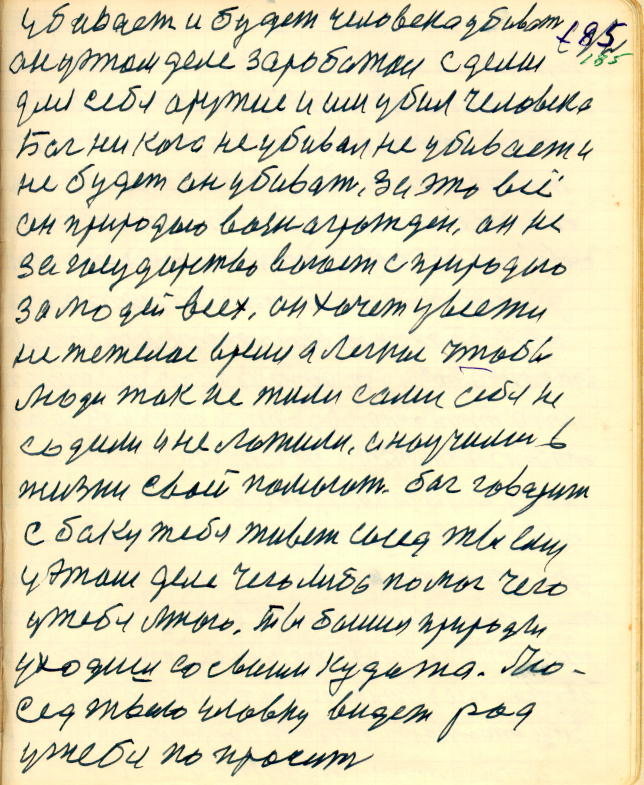 убивает и будет человека убиват
185
185
он утом деле заработал сделал
для себя оружие и им убил человека
Бог никого не убивал не убивает и
не будет он убиват, за это всё
он природою вознагражден, он не
за государство воюет с природою
за людей всех, он хочет увести
не тежелое время а легкое чтобы
люди так не жили сами себя не
садили и не ложили, а научились в
жизни своей помогат. бог говорит
с боку тебя живет сосед ты ему
у этом деле чего либо помог чего
у тебя много. ты боишся природы
уходиш со своим куда та. А со-
сед твою уловку видет рад
у тебя по просит